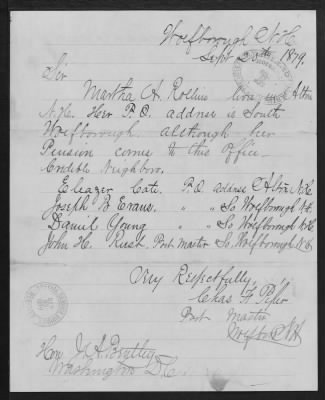 Wolfborough N.H.
Sept 25th 1879.
Sir
Martha A. Rollins lives in Alton
N.H. Her P.O. address is South
Wolfborough, although her
Pension comes to this Office—
Credible Neighbors.
Eleazer Cate. P.O. address Alton N.H.
Joseph B Evans. " " So Wolfborough N.H.
Daniel Young " " So Wolfborough N.H.
John H. Rust Post Master So Wolfborough N.H.
Very Respectfully,
Chas F. Piper
Post Master
Wolfboro N.H.
Hon. J. A. Bentley
Washington D.C.